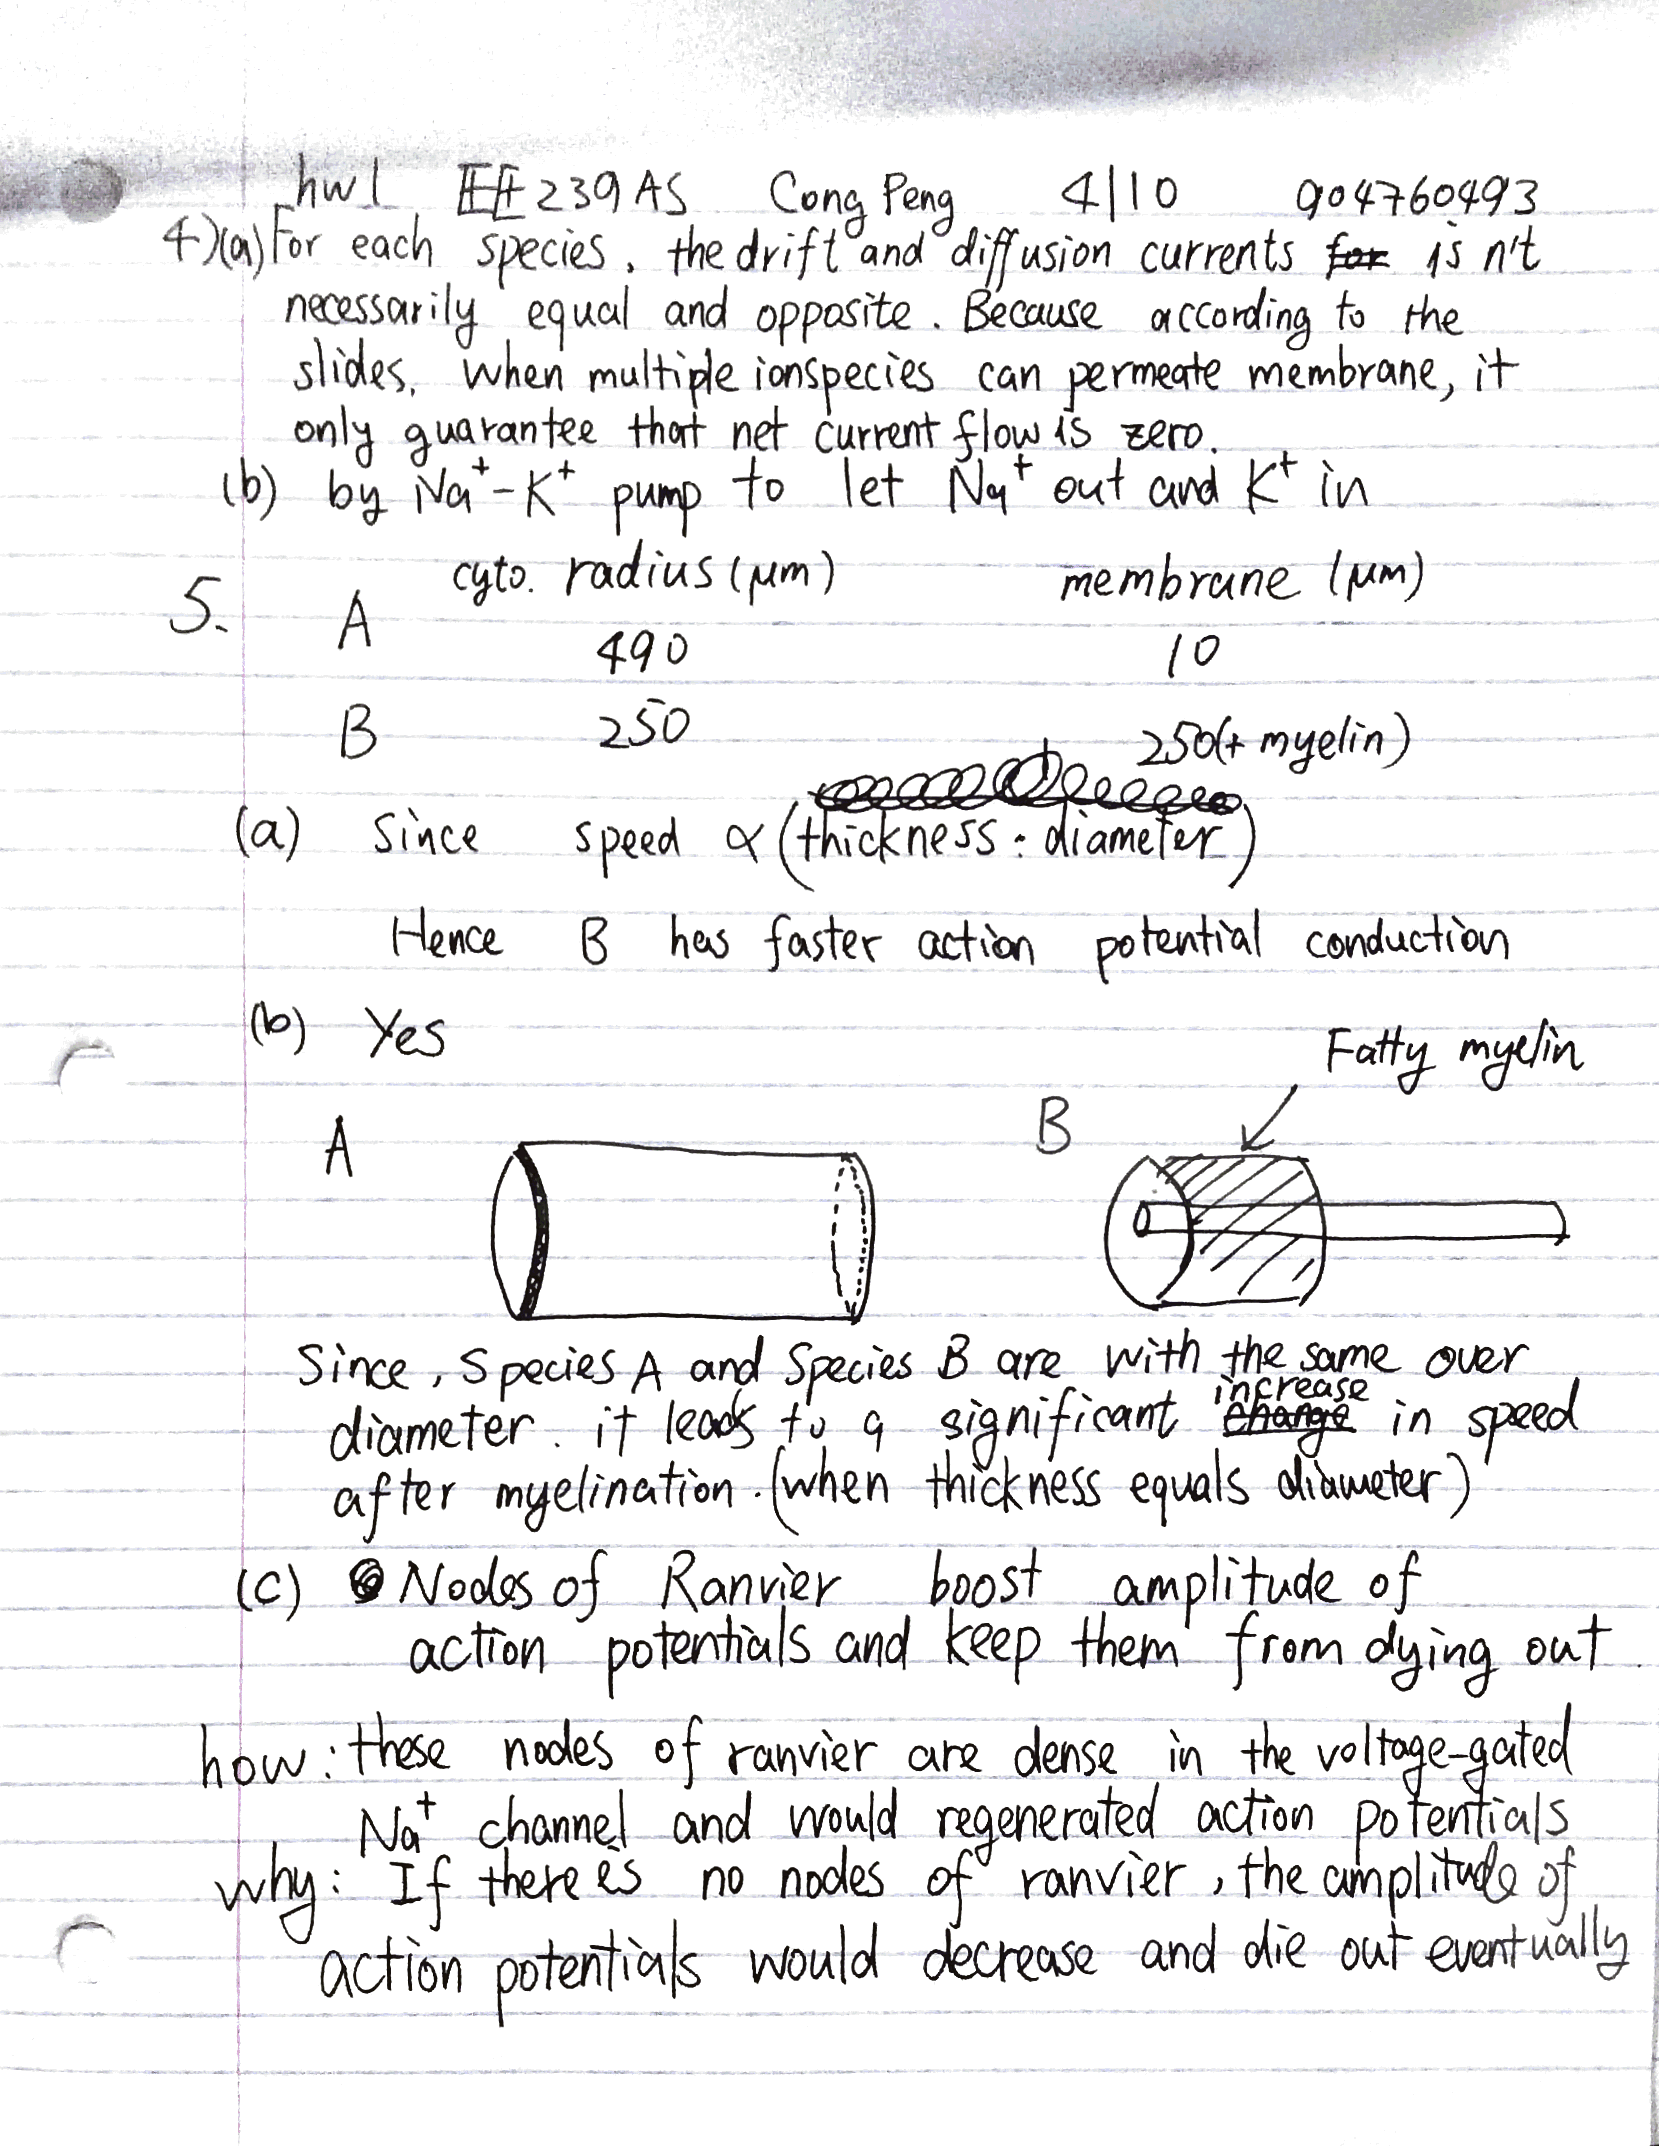 hw1 EE239AS Cong Peng 4/10 904760493
4)(a) For each species, the drift and diffusion currents for is n't
necessarily equal and opposite. Because according to the
slides, when multiple ionspecies can permeate membrane, it
only guarantee that net current flow is zero.
(b) by Na⁺-K⁺ pump to let Na⁺ out and K⁺ in
cyto. radius (μm) membrane (μm)
5. A 490 10
B 250 250(+ myelin)
(a) Since speed ∝ (thickness : diameter)
Hence B has faster action potential conduction
(b) Yes
Fatty myelin
A B
Since, Species A and Species B are with the same over
diameter. it leads to a significant change increase in speed
after myelination. (when thickness equals diameter)
(c) Nodes of Ranvier boost amplitude of
action potentials and keep them from dying out.
how: these nodes of ranvier are dense in the voltage-gated
Na⁺ channel and would regenerated action potentials
why: If there is no nodes of ranvier, the amplitude of
action potentials would decrease and die out eventually